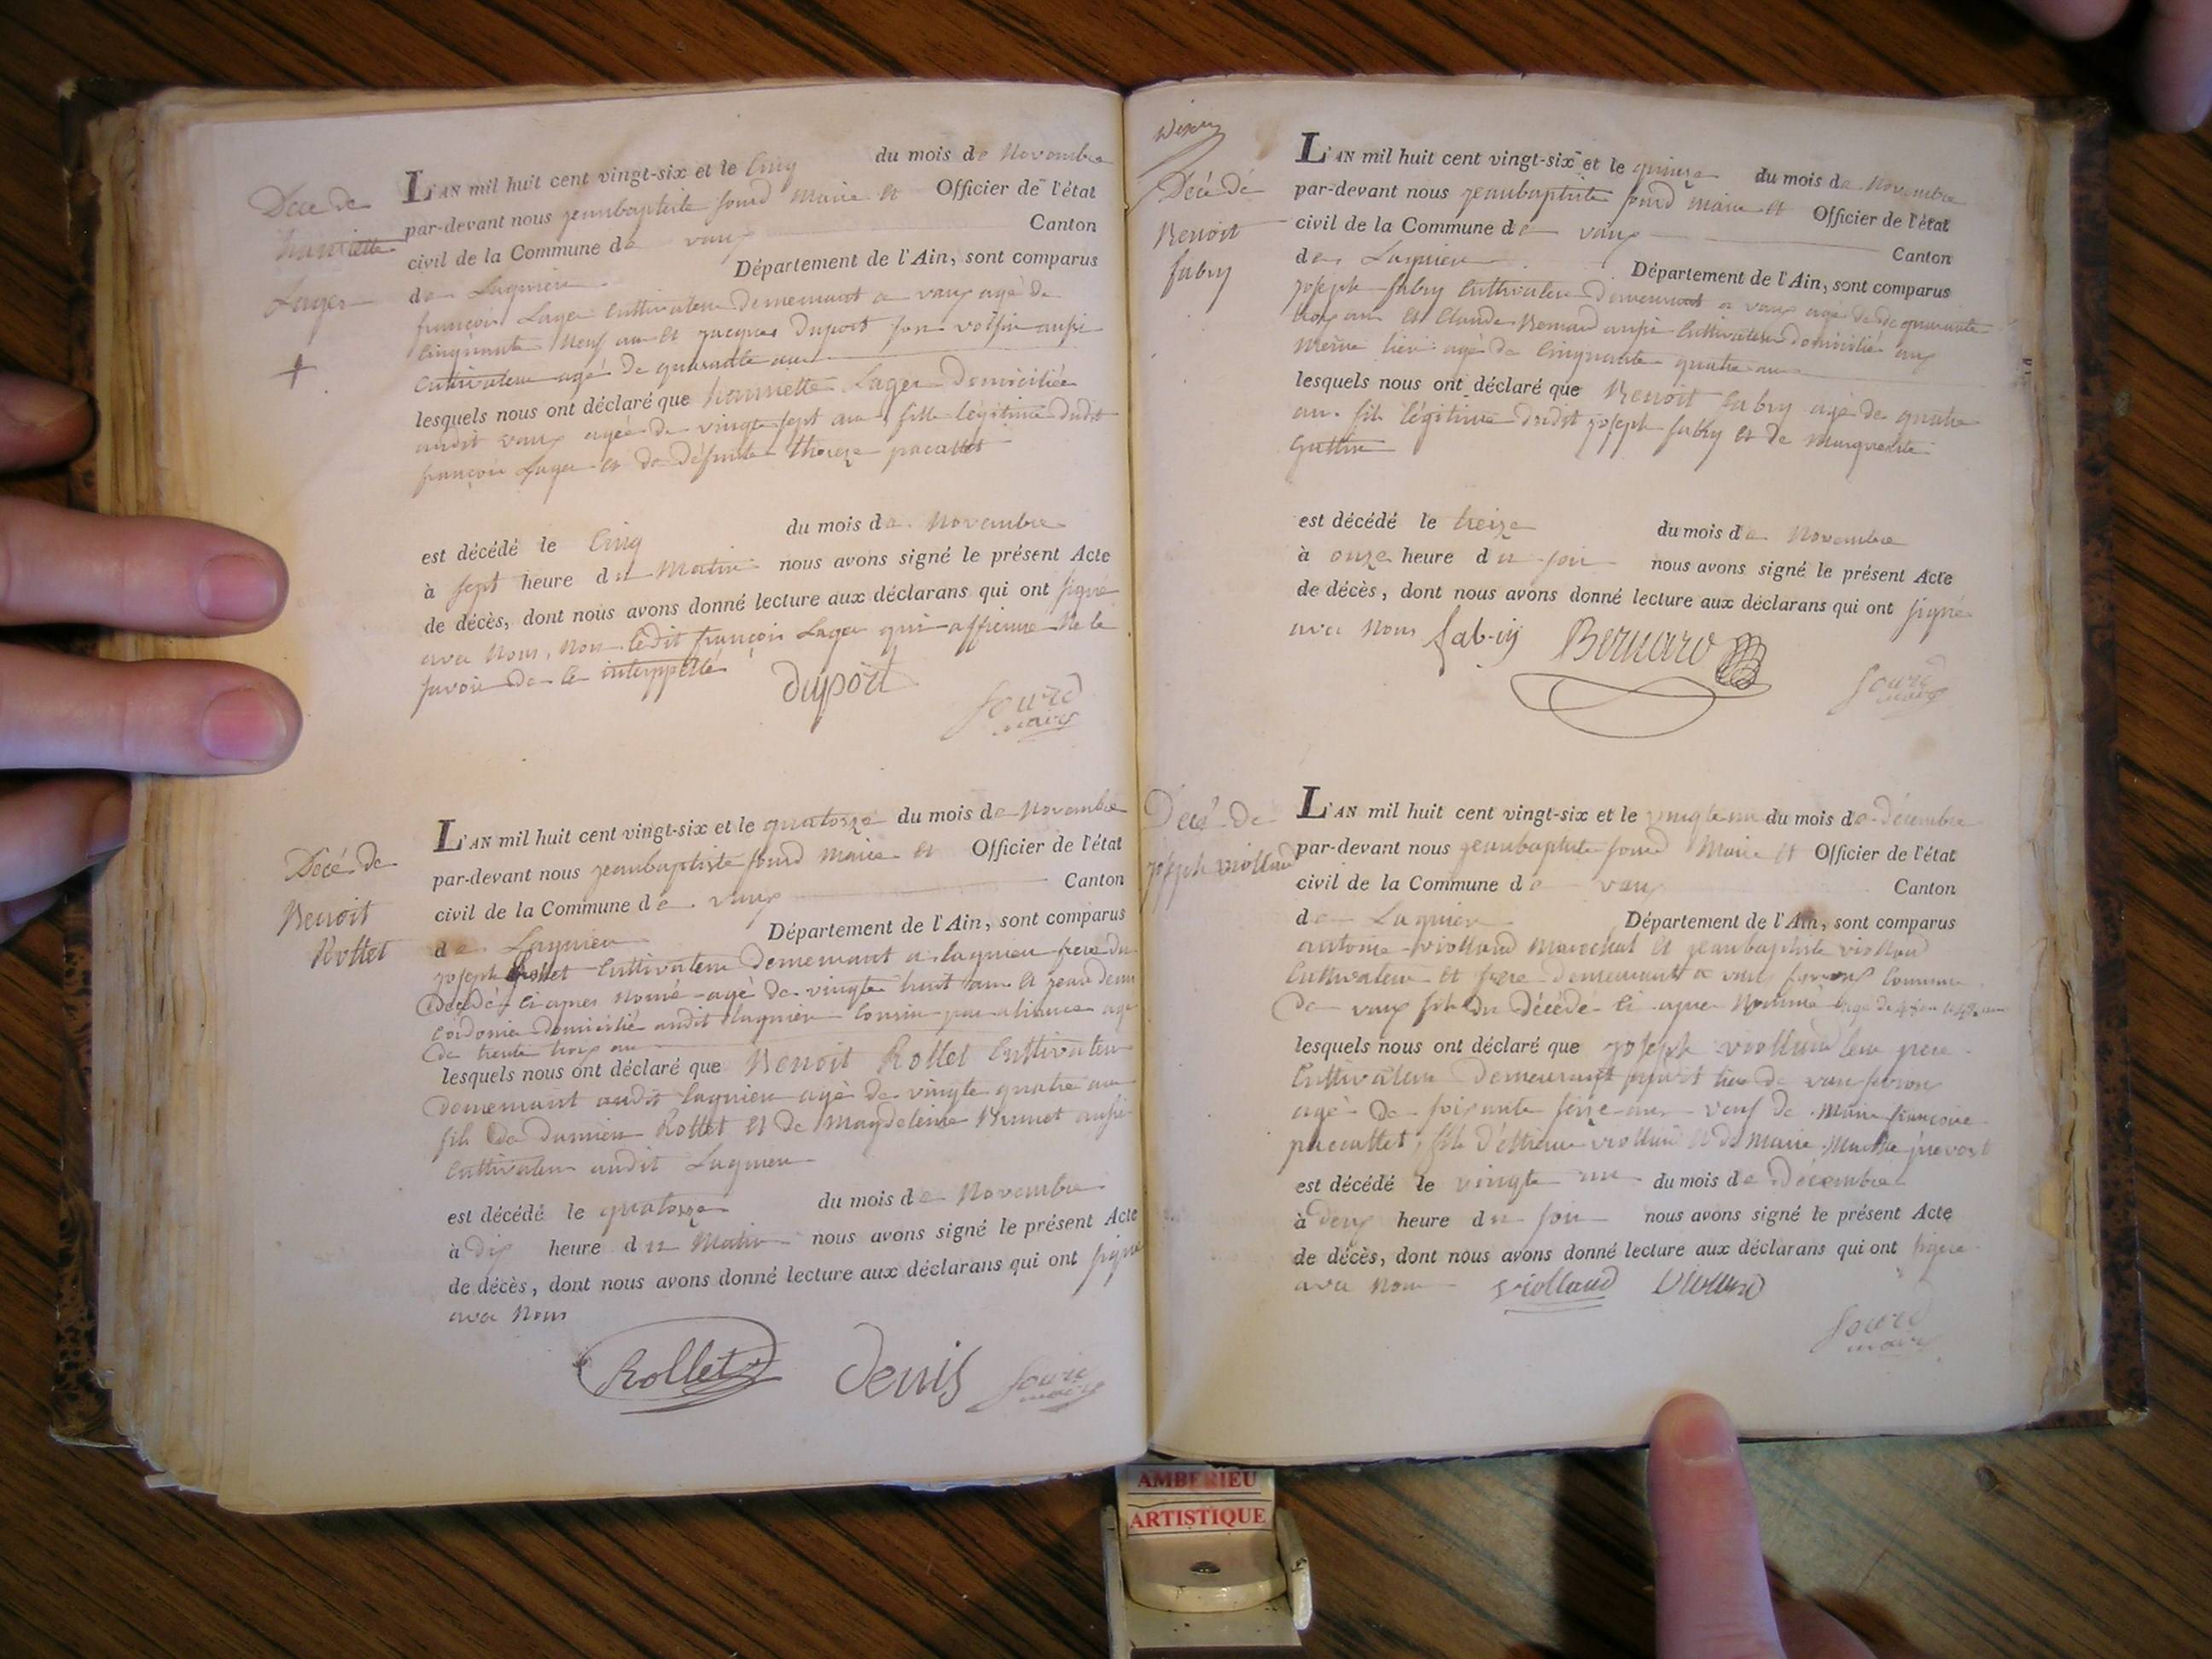 Décé de
henriette
Lager
L'AN mil huit cent vingt-six et le Cinq du mois de Novembre
par-devant nous jeanbaptiste sourd maire et Officier de l'état
civil de la Commune de vaux Canton
de Lagnieu Département de l'Ain, sont comparus
françois Lager Cultivateur demeurant a vaux agé de
Cinquante neuf ans et jacques Duport son voisin aussi
Cultivateur agé de quarante ans
lesquels nous ont déclaré que henriette Lager Domiciliée
audit vaux agée de vingt sept ans, fille légitime dudit
françois Lager et de défunte therese pacallet
est décédé le Cinq du mois de Novembre
à sept heure du Matin nous avons signé le présent Acte
de décès, dont nous avons donné lecture aux déclarans qui ont signé
avec Nous, Non ledit françois Lager qui affirme Ne le
savoir de ce interppellé
Duport
Sourd
maire
Décé de
Benoit
Rollet
L'AN mil huit cent vingt-six et le quatorze du mois de Novembre
par-devant nous jeanbaptiste sourd maire et Officier de l'état
civil de la Commune de vaux Canton
de Lagnieu Département de l'Ain, sont comparus
joseph Rollet Cultivateur demeurant a lagnieu frere du
Décédé Ci apres Nomé agé de vingte huit ans et jean denis
Cordonier domicilié audit lagnieu Cousin par aliance agé
de trente trois ans
lesquels nous ont déclaré que Benoit Rollet Cultivateur
demeurant audit lagnieu agé de vingte quatre ans
fils de damien Rollet et de Magdeleine Brunet aussi
Cultivateur audit Lagnieu
est décédé le quatorze du mois de Novembre
à dix heure du Matin nous avons signé le présent Acte
de décès, dont nous avons donné lecture aux déclarans qui ont signé
avec Nous
Rollet Denis Sourd
maire
Décé dé
Benoit
fabry
L'AN mil huit cent vingt-six et le quinze du mois de Novembre
par-devant nous jeanbaptiste sourd maire et Officier de l'état
civil de la Commune de vaux Canton
de Lagnieu Département de l'Ain, sont comparus
joseph fabry Cultivateur demeurant a vaux agé de de quarante
trois ans et Claude Bernard aussi Cultivateur domicilié aux
même lieu agé de Cinquante quatre ans
lesquels nous ont déclaré que Benoit fabry agé de quatre
ans fils légitime dudit joseph fabry et de marguerite
Guttin
est décédé le treize du mois de Novembre
à onze heure du soir nous avons signé le présent Acte
de décès, dont nous avons donné lecture aux déclarans qui ont signé
avec Nous fabry Bernard
Sourd
maire
Decé de
joseph viollaud
L'AN mil huit cent vingt-six et le vingte un du mois de décembre
par-devant nous jeanbaptiste sourd Maire et Officier de l'état
civil de la Commune de vaux Canton
de Lagnieu Département de l'Ain, sont comparus
antoine viollaud Marechal et jeanbaptiste viollaud
Cultivateur et frere demeurant a vaux Commune
de vaux fils du Décédé Ci apres Nommé
lesquels nous ont déclaré que joseph viollaud leur pere
Cultivateur demeurant lieu de vaux
agé de soixante seize ans veuf de Marie françoise
paccallet, fils d'ettiene viollaud et de Marie Marthe prevost
est décédé le vingte un du mois de Décembre
à deux heure du soir nous avons signé le présent Acte
de décès, dont nous avons donné lecture aux déclarans qui ont signé
avec Nous viollaud Viollaud
Sourd
maire
AMBERIEU
ARTISTIQUE